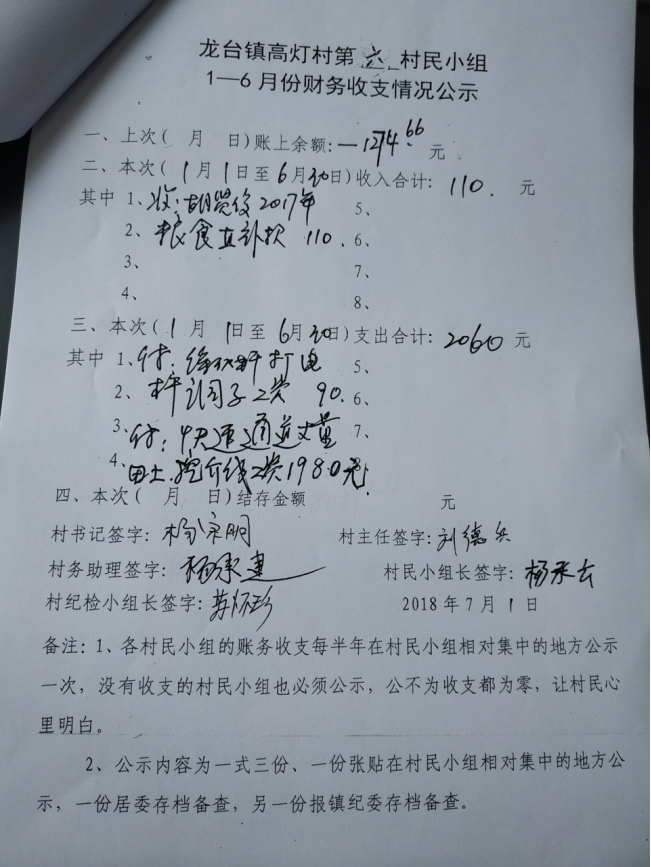 龙台镇高灯村第六村民小组
1—6月份财务收支情况公示
一、上次( 月 日)账上余额:—1274.66元
二、本次(1月1日至6月30日)收入合计:110.元
其中 1、收: 2017年 5、
2、粮食直补款 110. 6、
3、 7、
4、 8、
三、本次(1月1日至6月30日)支出合计:2060元
其中 1、付: 打电 5、
2、杆 调子工资 90. 6、
3、付:快速通道丈量 7、
4、田土. 界线工资1980元
四、本次( 月 日)结存金额 元
村书记签字:杨宗明 村主任签字:刘德兵
村务助理签字:杨承建 村民小组长签字:杨承云
村纪检小组长签字:苏怀珍 2018年7月1日
备注:1、各村民小组的账务收支每半年在村民小组相对集中的地方公示
一次,没有收支的村民小组也必须公示,公不为收支都为零,让村民心
里明白。
2、公示内容为一式三份、一份张贴在村民小组相对集中的地方公
示,一份居委存档备查,另一份报镇纪委存档备查。